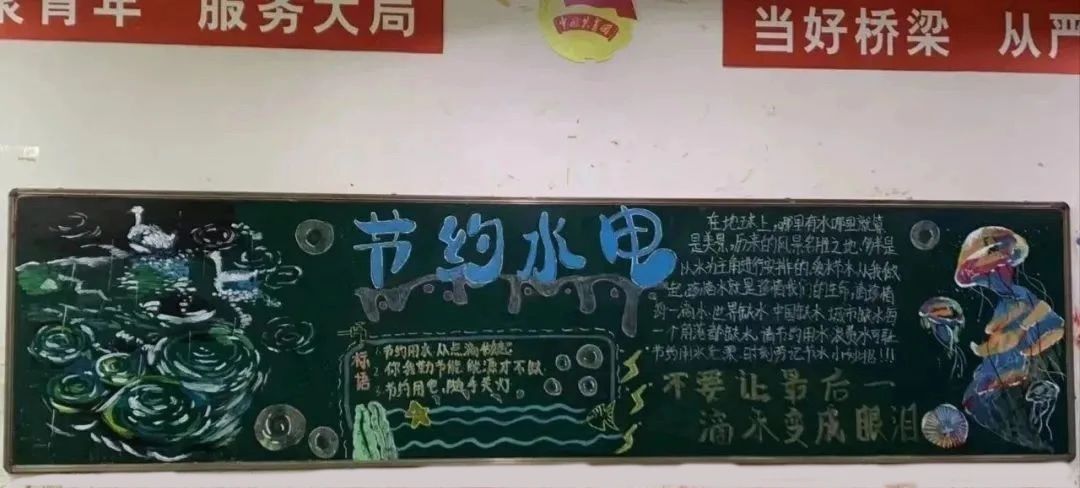 青年 服务大局
中国共青团
当好桥梁 从严
节约水电
标语
节约用水,从点滴做起
你我勤节能,能源才不缺
节约用电,随手关灯
在地球上,哪里有水哪里就算
是美景,历来的风景名胜之地,多半是
以水为主角进行安排的,爱水节水,从我做
起,珍惜水就是珍惜我们的生命,请珍惜
每一滴水,世界缺水 中国缺水 城市缺水 每
一个角落都缺水,请节约用水 浪费水可耻
节约用水光荣 时刻牢记节水小对招!!!
不要让最后一
滴水变成眼泪